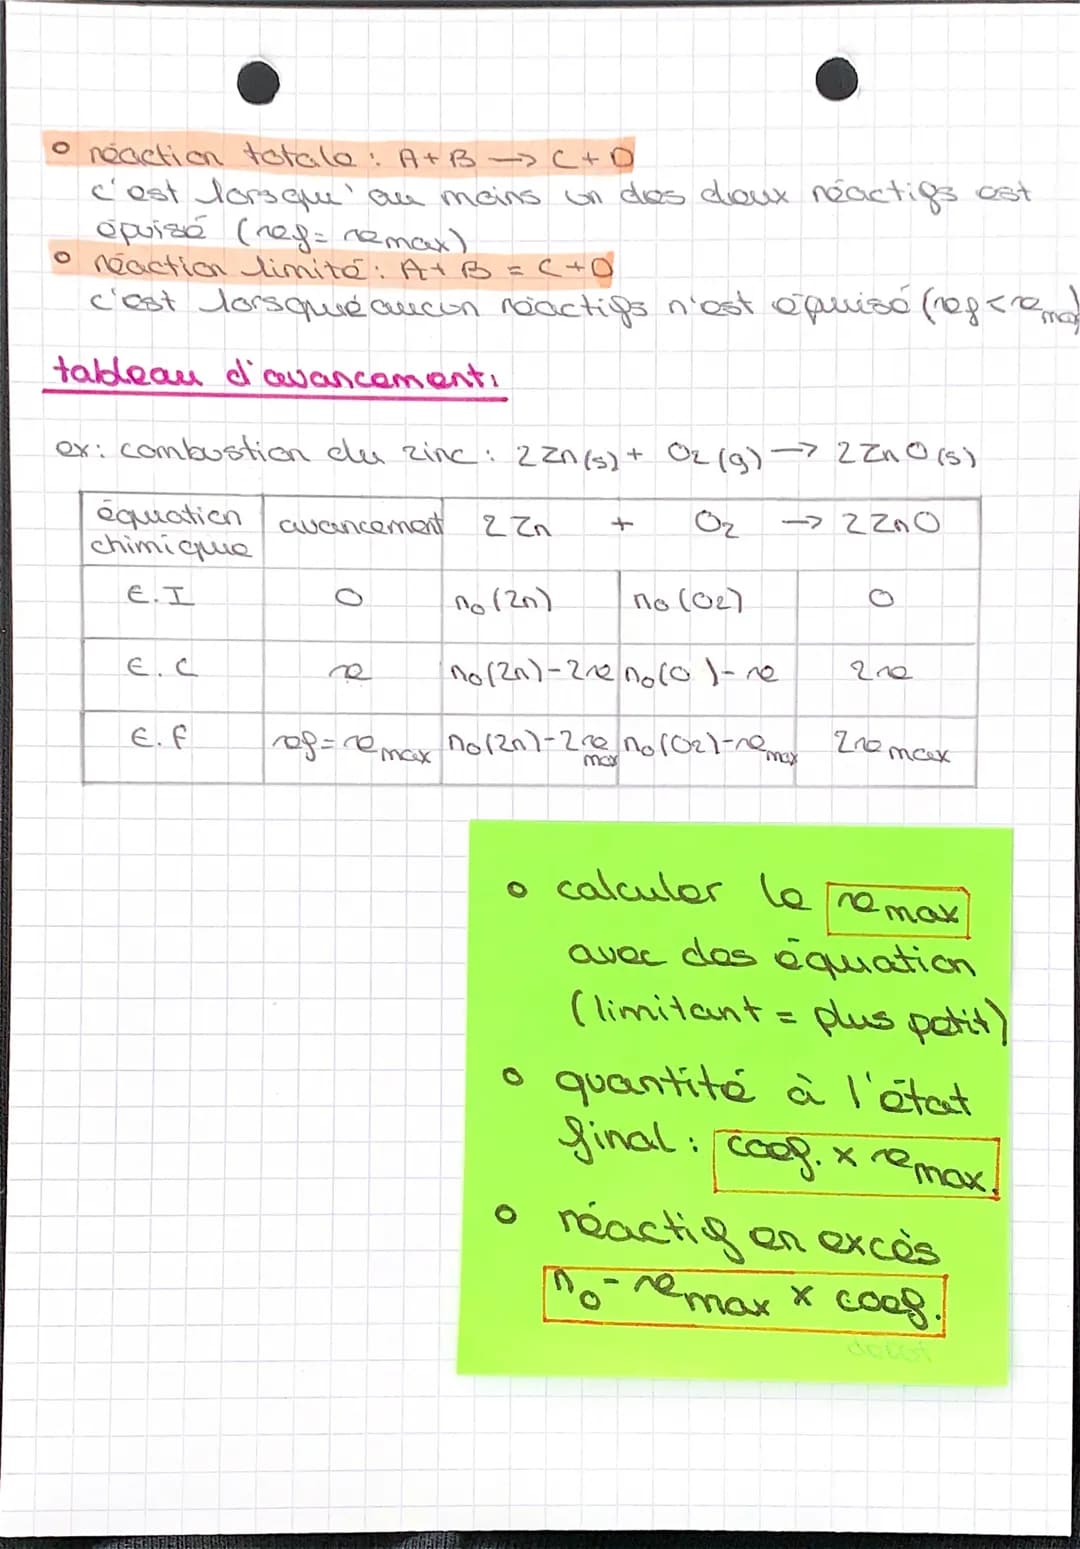 réaction totale : A + B → C + D
c'est lorsqu'au moins un des deux réactifs est
épuisé (xf = xmax)
réaction limité : A + B = C + D
c'est lorsque aucun réactifs n'est épuisé (xf < xmax)
tableau d'avancement :
ex : combustion du zinc : 2 Zn (s) + O2 (g) → 2 ZnO (s)
équation chimique avancement 2 Zn + O2 → 2 ZnO
E.I 0 n0 (Zn) n0 (O2) 0
E.C x n0 (Zn) - 2x n0 (O ) - x 2x
E.F xf = xmax n0 (Zn) - 2xmax n0 (O2) - xmax 2xmax
calculer le xmax
avec des équation
(limitant = plus petit)
quantité à l'état
final : coef. x xmax.
réactif en excès
n0 - xmax x coef.